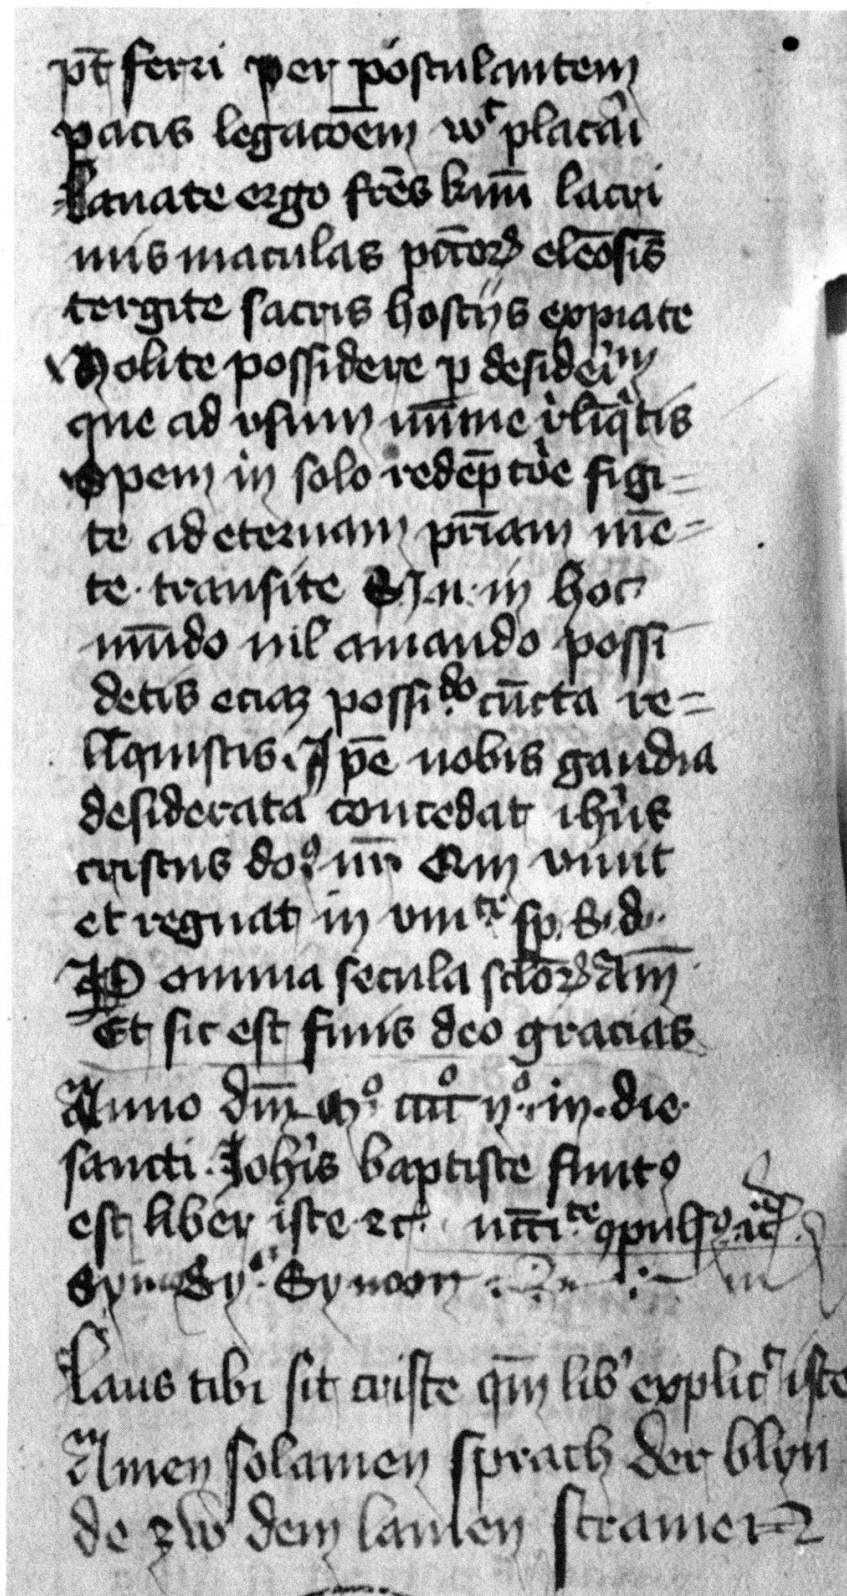 pt̄ ferri per postulantem
pacis legacōem placari
Lauate ergo frēs kmī lacri
mis maculas pctōrꝝ elēosis
tergite sacris hostijs expiate
Nolite possidere p desideriū
que ad vsum mīme rliq̄tis
Spem in solo redēptore figi=
te ad eternam pr̄iam mē=
te transite Si .n. in hoc
mūdo nil amando possi
detis eciaꝫ possi.do cūcta re=
liquistis. Ipē nobis gaudia
desiderata concedat ihus
cristus do9 nr̄ Qm viuit
et regnat in vnite sp. S. d.
Per omnia secula sclorꝝ Am̄
Et sic est finis deo gracias
Anno dm̄ mo cccco ijo in die
sancti Johis baptiste finit9
est liber iste ꝛc
Symon
Laus tibi sit criste qm̄ lib' explicit iste
Amen solamen sprach der blyn
de zw dem lamen stramer